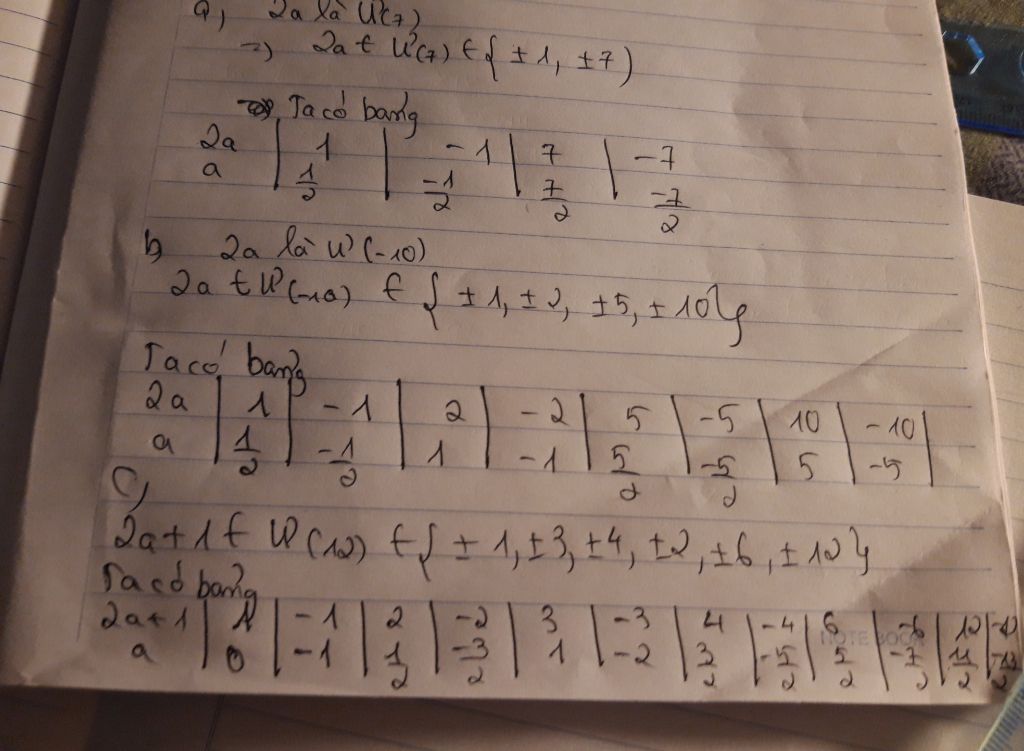 a, 2a là Ư(7)
=> 2a € Ư(7) € { ± 1, ±7 )
Ta có bảng
2a | 1 | -1 | 7 | -7
a | 1/2 | -1/2 | 7/2 | -7/2
b, 2a là Ư (-10)
2a € Ư(-10) € { ± 1, ± 2, ±5, ± 10 }
Ta có bảng
2a | 1 | -1 | 2 | -2 | 5 | -5 | 10 | -10 |
a | 1/2 | -1/2 | 1 | -1 | 5/2 | -5/2 | 5 | -5 |
C,
2a+1 € Ư (12) € { ± 1, ±3, ±4, ±2, ±6, ±12 }
Ta có bảng
2a+1 | 1 | -1 | 2 | -2 | 3 | -3 | 4 | -4 | 6 | -6 | 12 | -12
a | 0 | -1 | 1/2 | -3/2 | 1 | -2 | 3/2 | -5/2 | 5/2 | -7/2 | 11/2 | -13/2
NOTE BOOK